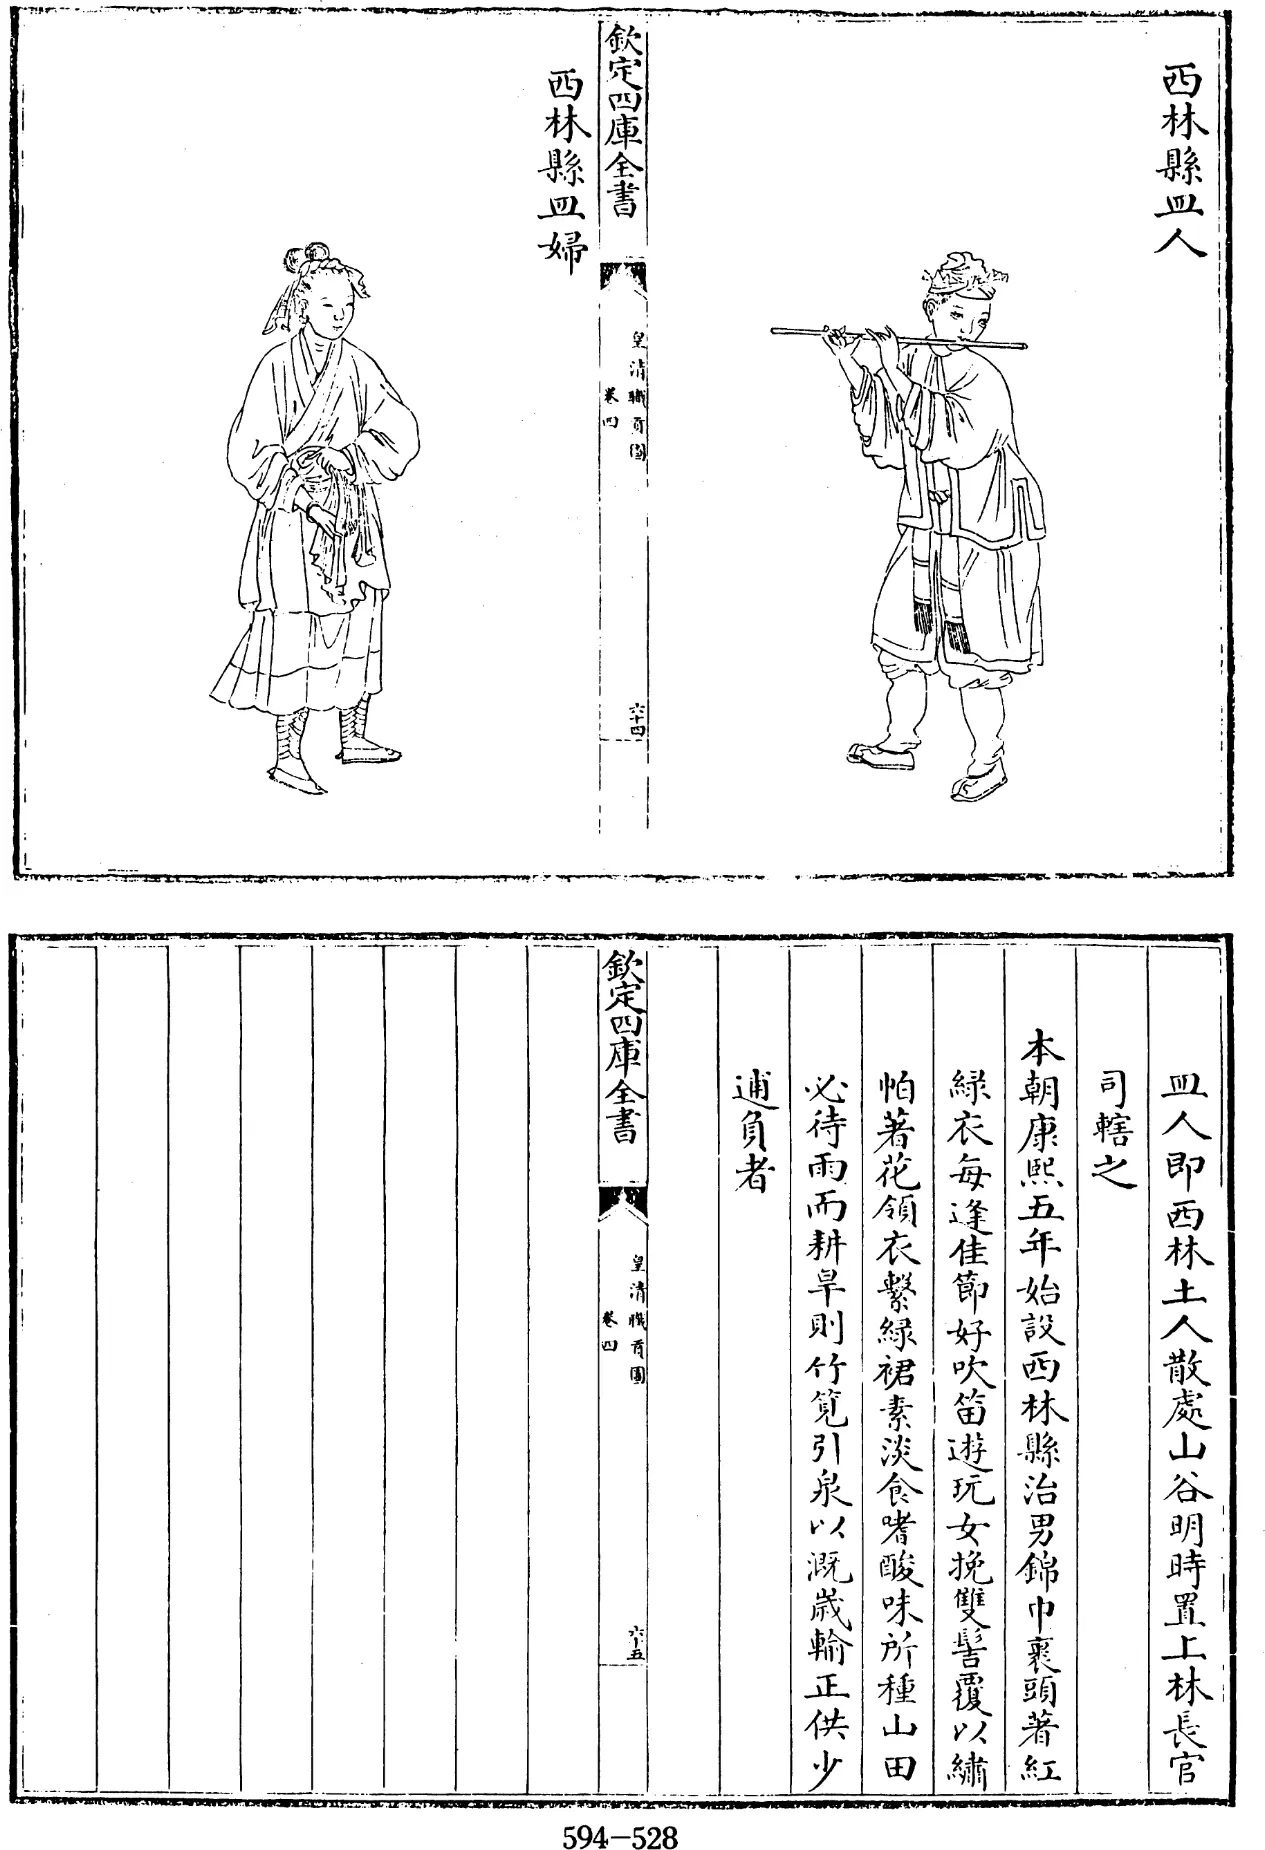 西林縣皿人
欽定四庫全書
皇清職貢圖
卷四
六十四
西林縣皿婦
皿人即西林土人散處山谷明時置上林長官
司轄之
本朝康熙五年始設西林縣治男錦巾裹頭著紅
綠衣每逢佳節好吹笛遊玩女挽雙髻覆以繡
帕著花領衣繫綠裙素淡食嗜酸味所種山田
必待雨而耕旱則竹筧引泉以溉歲輸正供少
逋負者
欽定四庫全書
皇清職貢圖
卷四
六十五
594-528